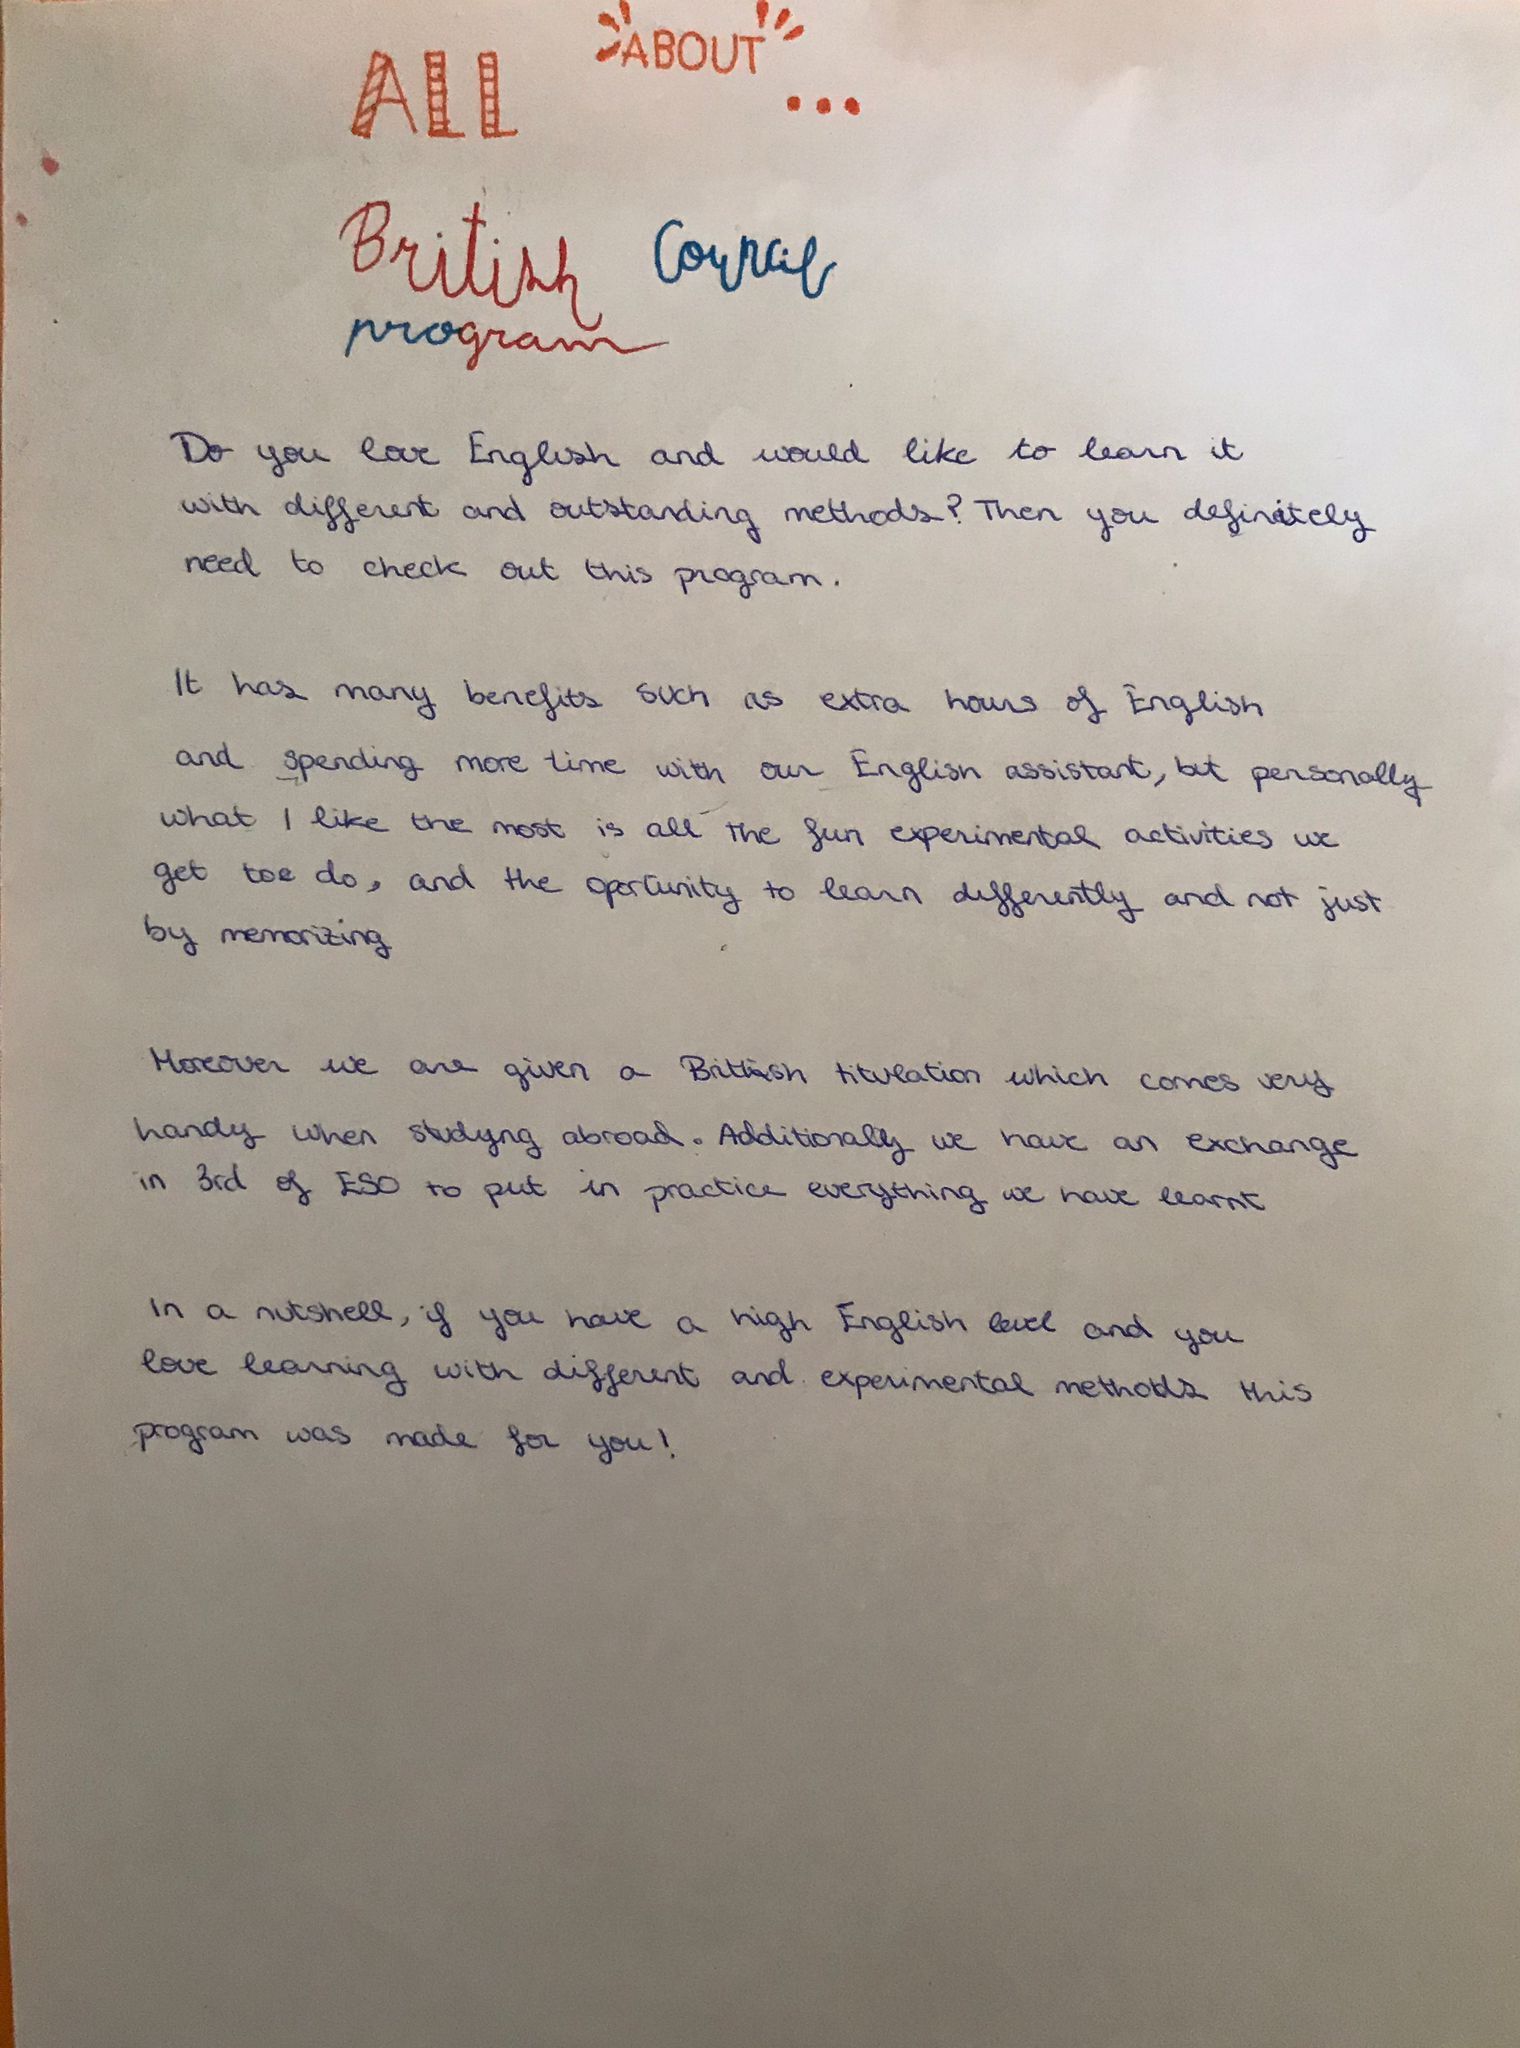 ALL ABOUT ...
British Council
program
Do you love English and would like to learn it
with different and outstanding methods? Then you definitely
need to check out this program.
It has many benefits such as extra hours of English
and spending more time with our English assistant, but personally
what I like the most is all the fun experimental activities we
get toe do, and the oportunity to learn differently and not just
by memorizing
Moreover we are given a British titulation which comes very
handy when studyng abroad. Additionally we have an exchange
in 3rd of ESO to put in practice everything we have learnt
In a nutshell, if you have a high English level and you
love learning with different and experimental methods this
program was made for you!